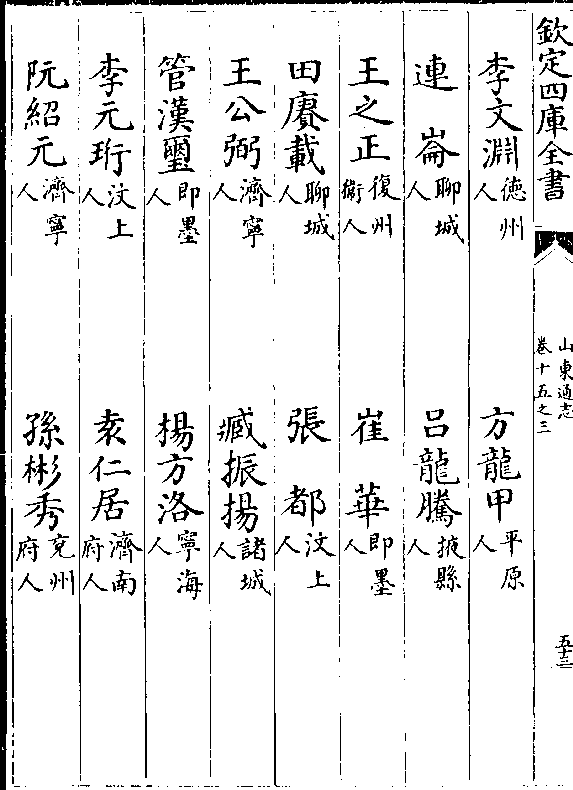 欽定四庫全書
山東通志
卷十五之三
五十三
李文淵德州人
方龍甲平原人
連崙聊城人
呂龍騰掖縣人
王之正復州衛人
崔華即墨人
田賡載聊城人
張都汶上人
王公弼濟寧人
臧振揚諸城人
管漢璽即墨人
楊方洛寧海人
李元珩汶上人
袁仁居濟南府人
阮紹元濟寧人
孫彬秀兖州府人